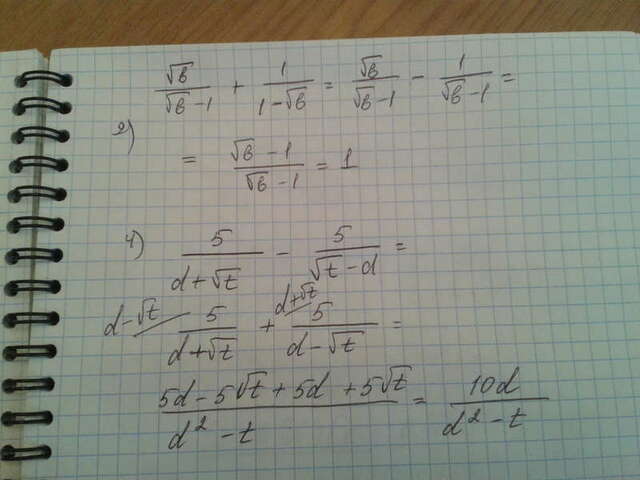 √в/(√в -1) + 1/(1-√в) = √в/(√в -1) - 1/(√в -1) =
2)
= (√в -1)/(√в -1) = 1
4) 5/(d+√t) - 5/(√t -d) =
d-√t 5/(d+√t) + d+√t 5/(d-√t) =
(5d - 5√t + 5d + 5√t)/(d² - t) = 10d/(d² - t)